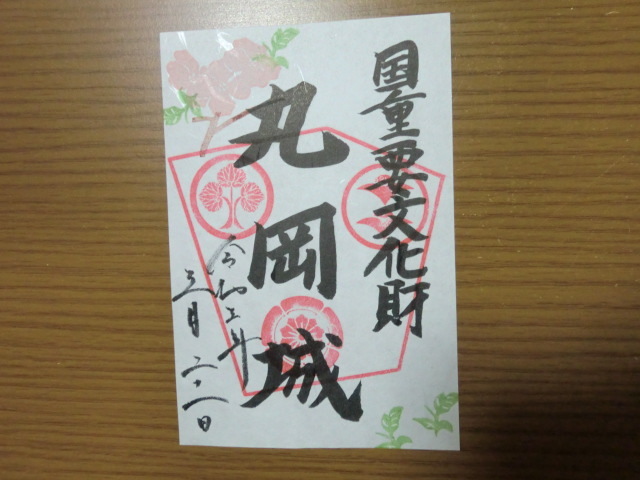 国重要文化財
丸岡城
令和五年
三月二十一日